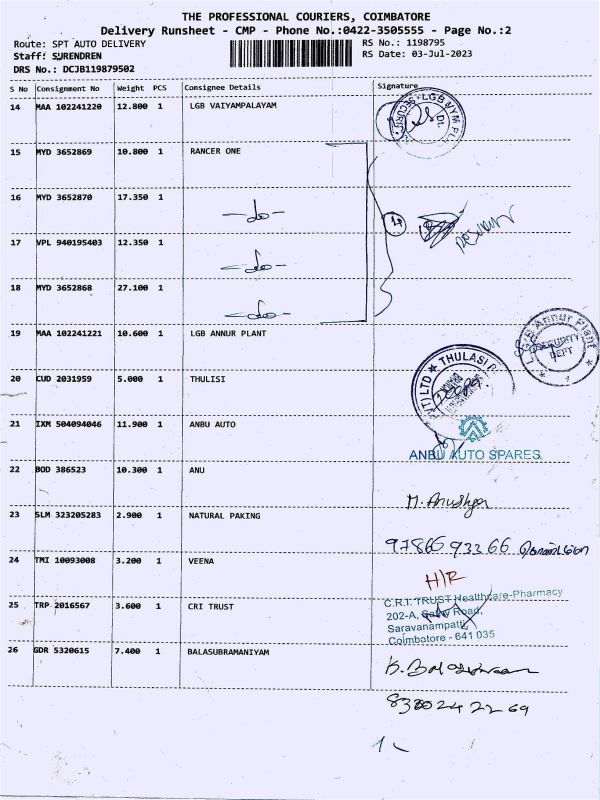 THE PROFESSIONAL COURIERS, COIMBATORE
Delivery Runsheet - CMP - Phone No.:0422-3505555 - Page No.:2
Route: SPT AUTO DELIVERY
RS No.: 1198795
Staff: SURENDREN
RS Date: 03-Jul-2023
DRS No.: DCJB119879502
S No Consignment No Weight PCS Consignee Details Signature
14 MAA 102241220 12.800 1 LGB VAIYAMPALAYAM
15 MYD 3652869 10.800 1 RANCER ONE
16 MYD 3652870 17.350 1 -do-
17 VPL 940195403 12.350 1 -do-
18 MYD 3652868 27.100 1 -do-
4
19 MAA 102241221 10.600 1 LGB ANNUR PLANT
LGB Annur Plant
SECURITY
DEPT
20 CUD 2031959 5.000 1 THULISI
THULASI
21 IXM 504094046 11.900 1 ANBU AUTO
ANBU AUTO SPARES
22 BOD 386523 10.300 1 ANU
23 SLM 323205283 2.900 1 NATURAL PAKING
24 TMI 10093008 3.200 1 VEENA
H/R
25 TRP 2016567 3.600 1 CRI TRUST
C.R.I. TRUST Healthcare-Pharmacy
202-A, Road,
Saravanampatti,
Coimbatore - 641 035
26 GDR 5320615 7.400 1 BALASUBRAMANIYAM